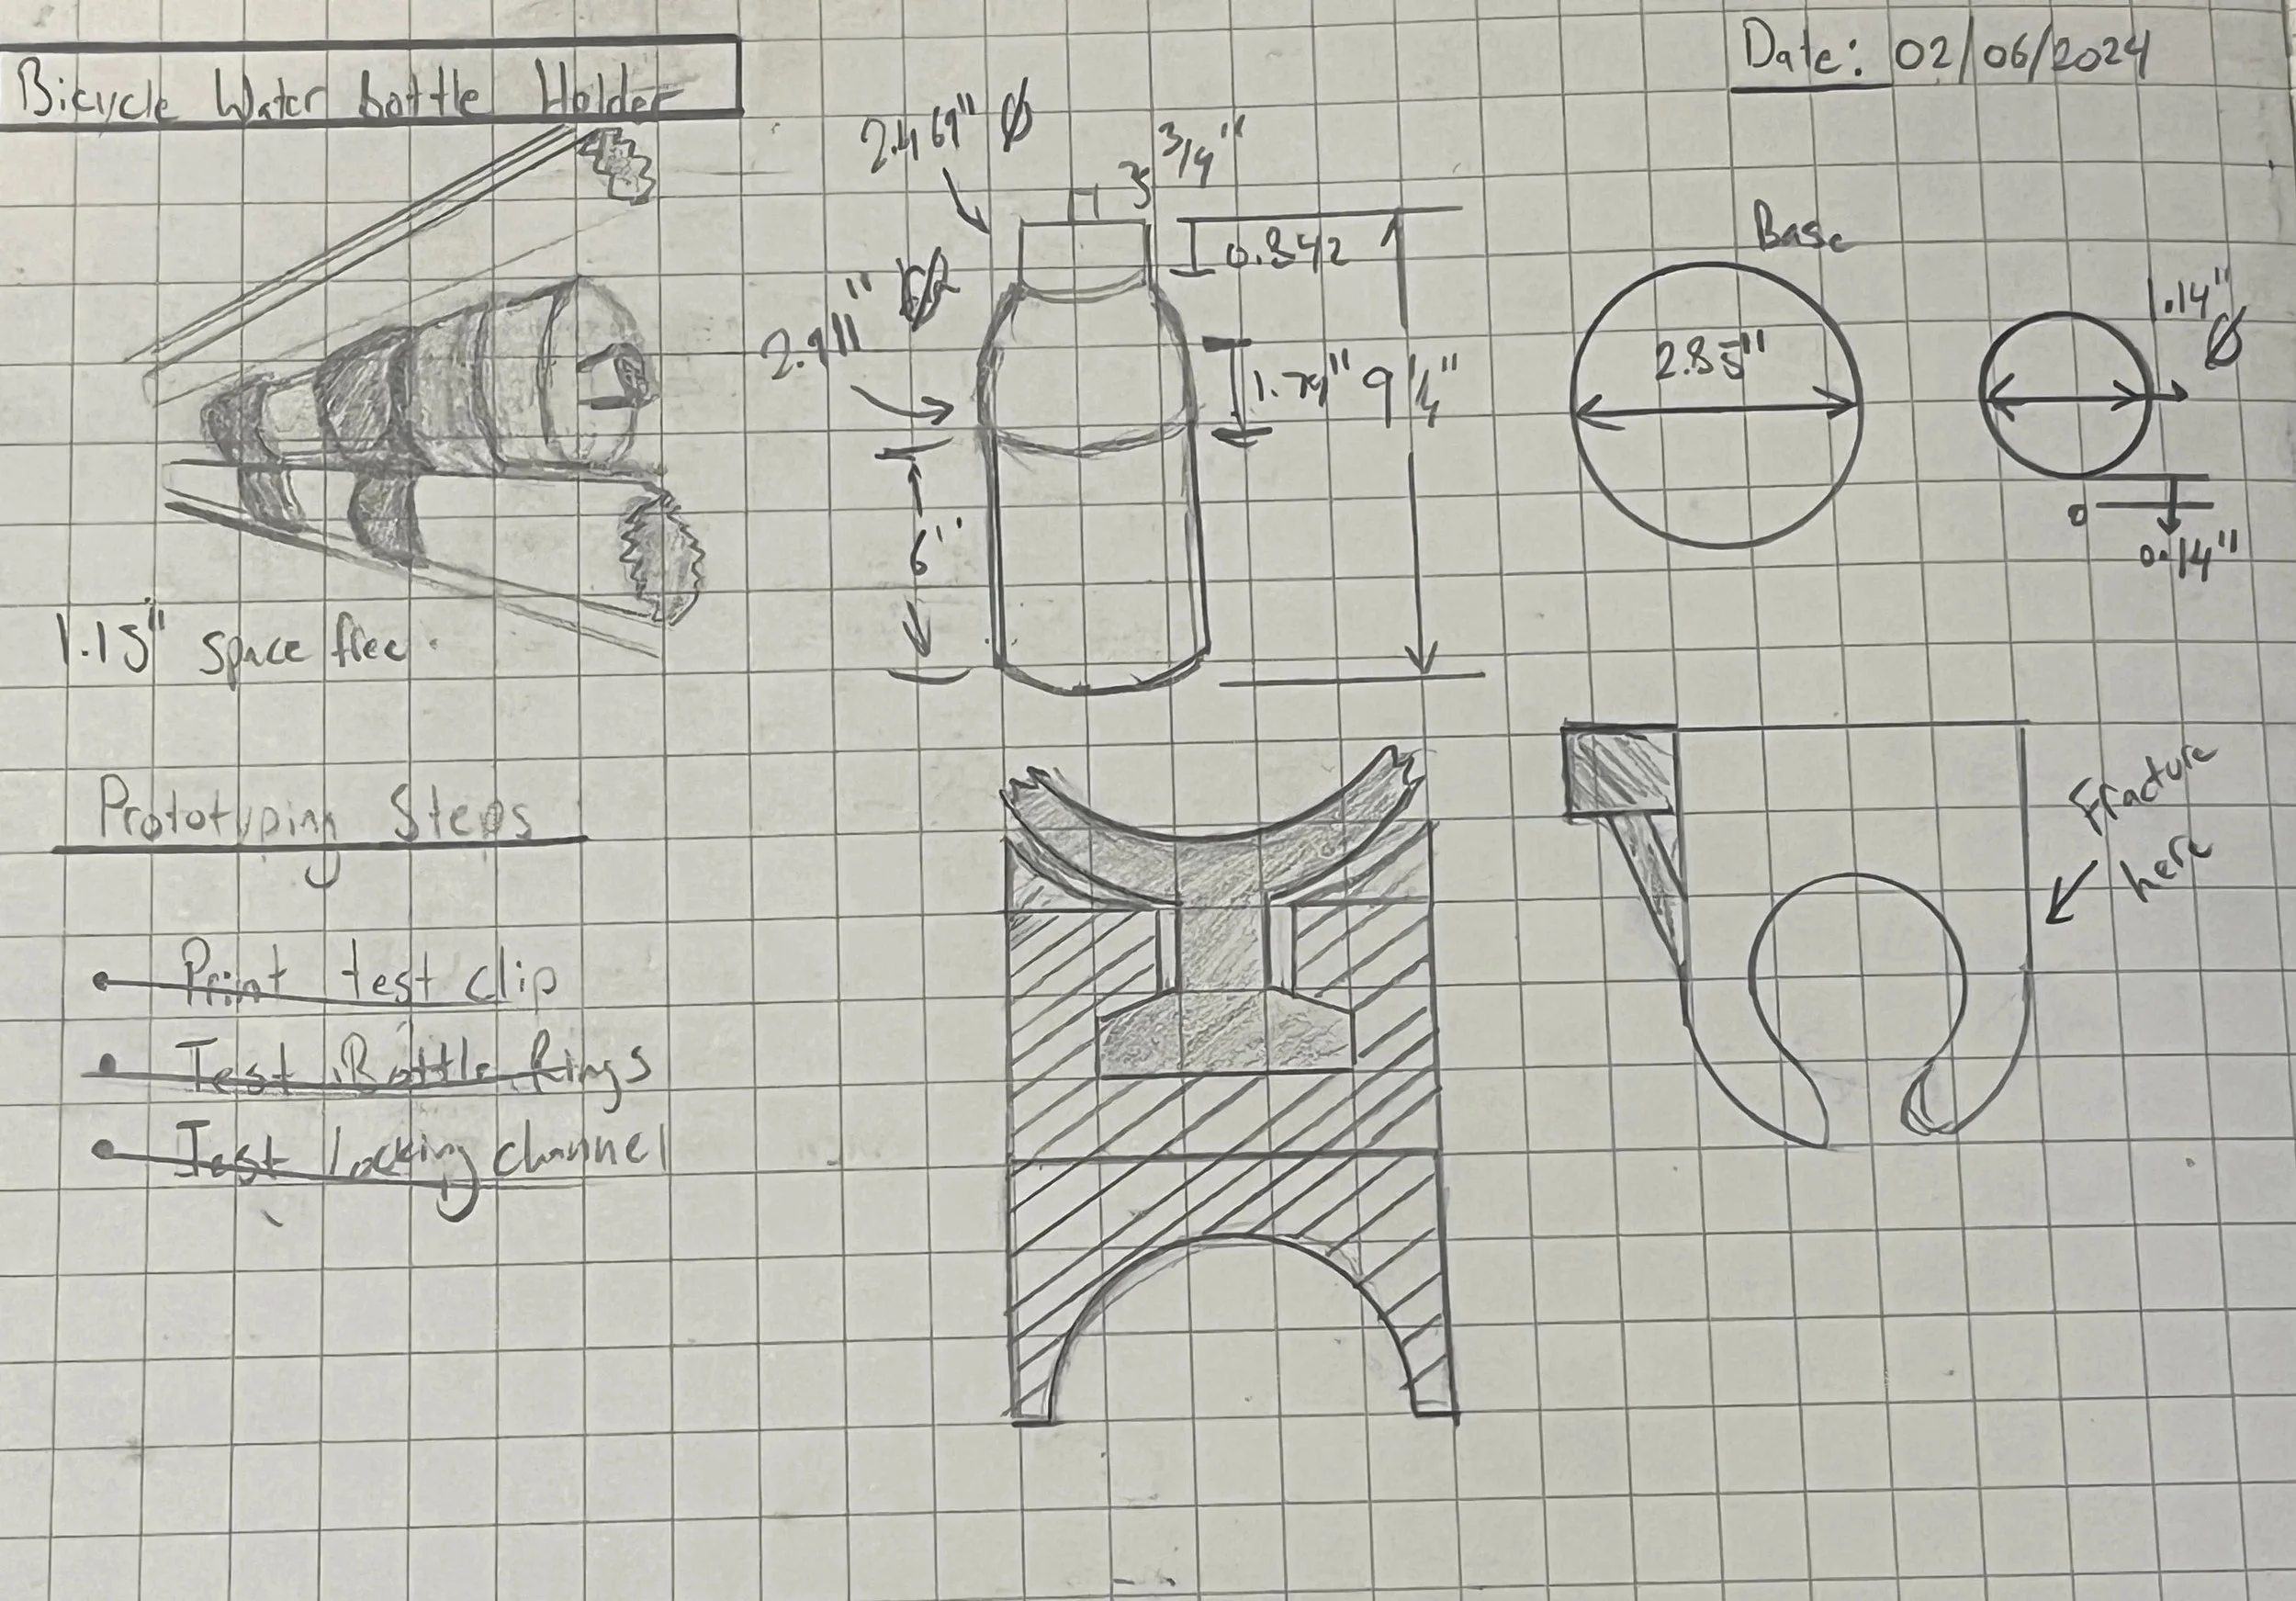 Bicycle Water bottle Holder
Date: 02/06/2024
2.469" Ø
3/4"
0.842
2.911" Ø
1.79"
9 1/4"
6"
Base
2.85"
1.14" Ø
0.14"
1.15" space free.
Fracture
here
Prototyping Steps
• Print test clip
• Test Bottle Rings
• Test Locking channel